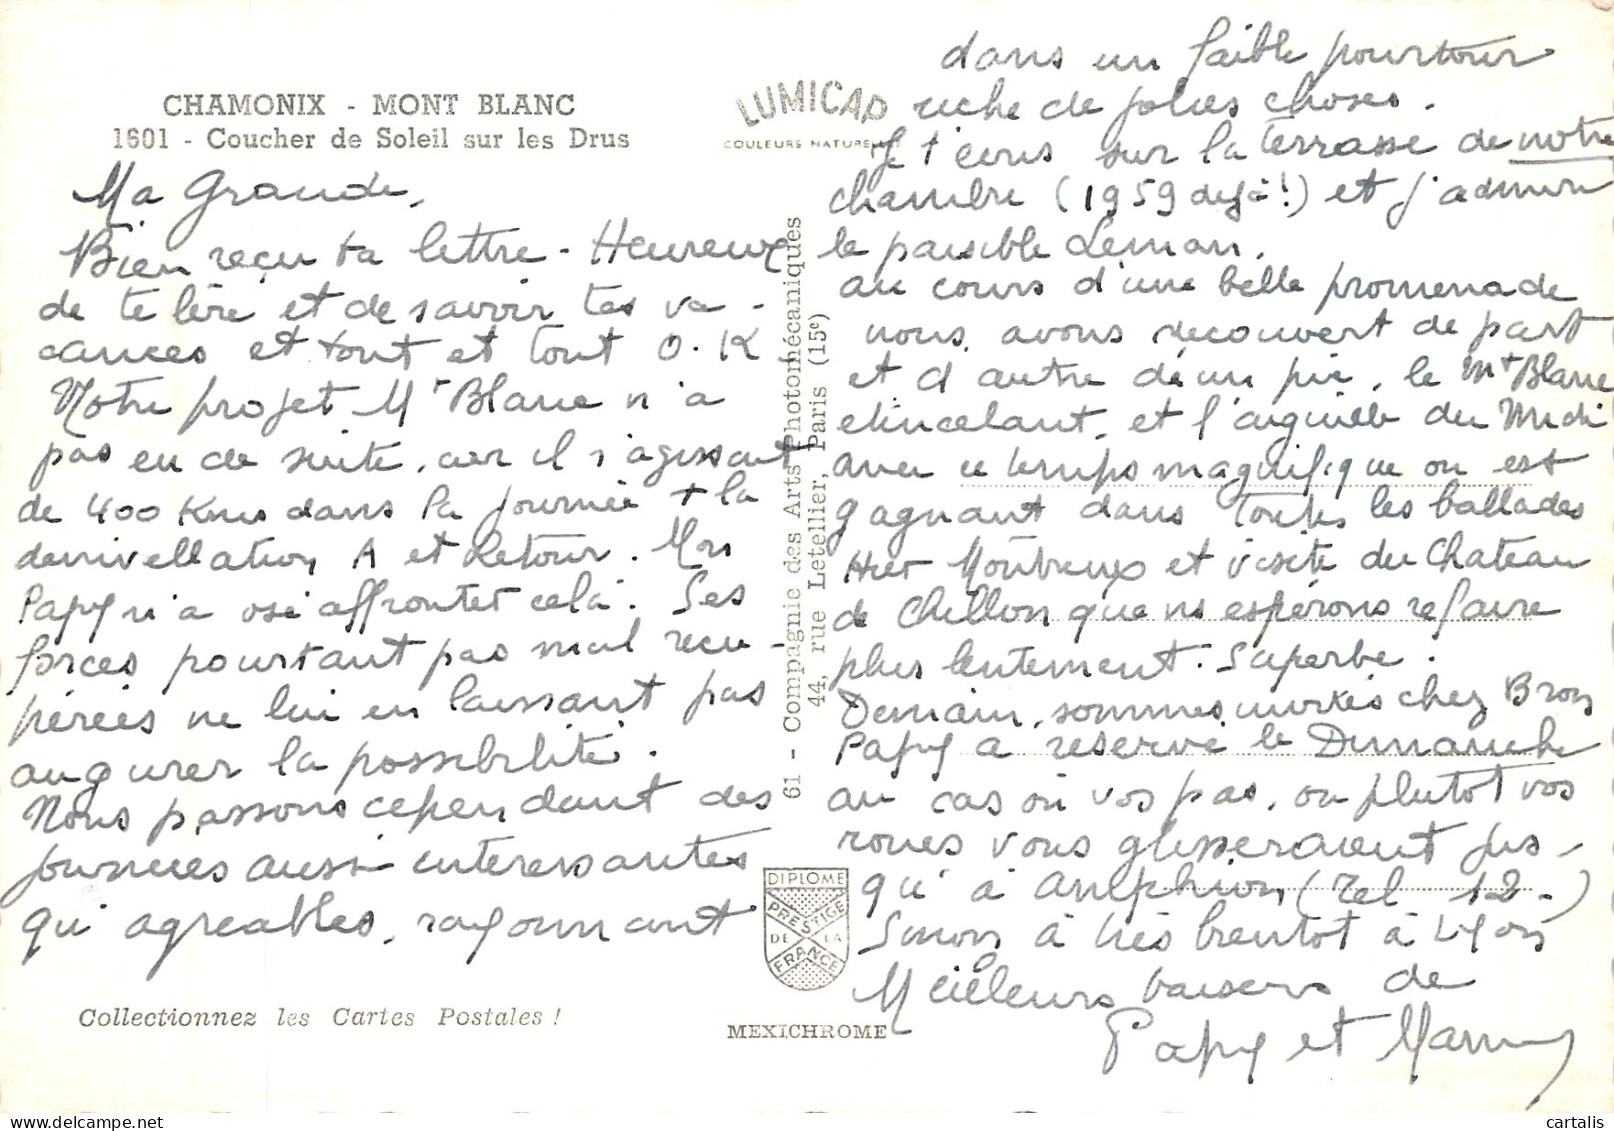 CHAMONIX - MONT BLANC
1601 - Coucher de Soleil sur les Drus
LUMICAP
COULEURS NATURE
Ma Grande,
Bien reçu ta lettre - Heureux
de te lire et de savoir tes va -
cances et tout et tout O.K
Notre projet Mt Blanc n'a
pas eu de suite, car il s'agissait
de 400 Kms dans la journée + la
dénivellation A et Retour. Mon
Papy n'a osé affronter cela. Ses
forces pourtant pas mal récu -
pérées ne lui en laissant pas
augurer la possibilité.
Nous passons cependant des
journées aussi intéressantes
qu'agréables, rayonnant
dans un faible pourtour
riche de jolies choses.
Je t'écris sur la terrasse de notre
chambre (1959 déjà!) et j'admire
le paisible Léman.
au cours d'une belle promenade
nous avons découvert de part
et d'autre d'un pic, le Mt Blanc
étincelant, et l'aiguille du Midi
avec ce temps magnifique on est
gagnant dans toutes les ballades
Hier Montreux et visite du Chateau
de Chillon que ns espérons refaire
plus lentement. Superbe.
Demain, sommes invités chez Bron
Papy a réservé le Dimanche
au cas où vos pas, ou plutôt vos
roues vous glisseraient jus -
qu'à Amphion (Tel 12 -)
Sinon à très bientôt à Lyon
Meilleurs baisers de
Papy et Mamy
61 - Compagnie des Arts Photomécaniques
44, rue Letellier, Paris (15e)
DIPLOME
PRESTIGE
DE LA
FRANCE
Collectionnez les Cartes Postales !
MEXICHROME
cartalis.com